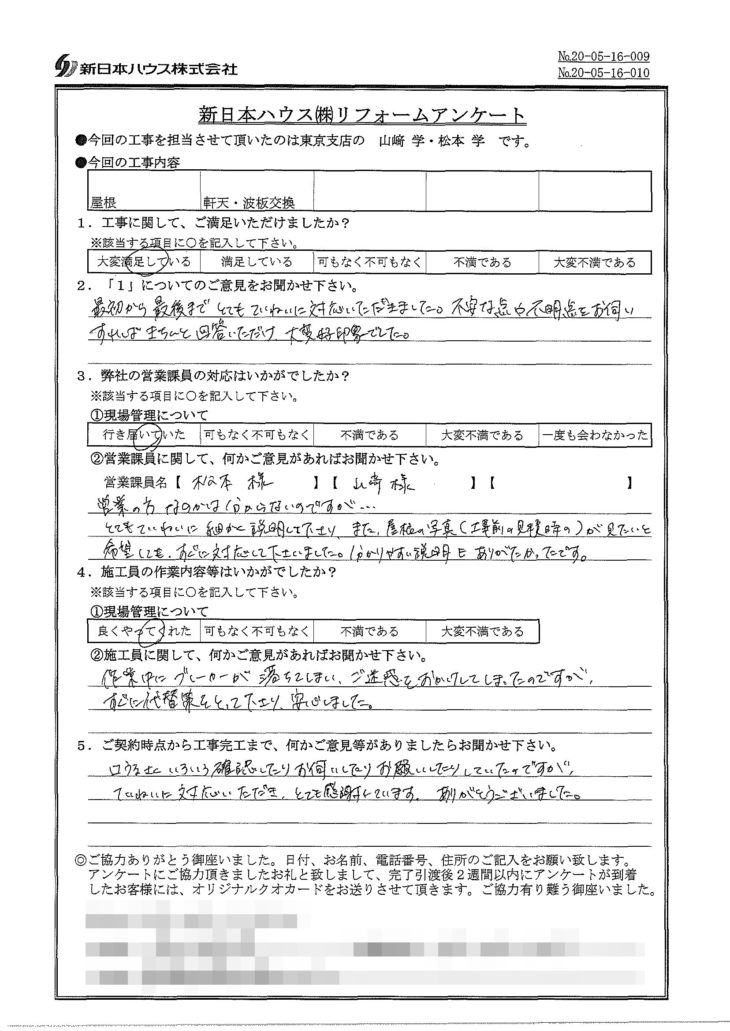 新日本ハウス株式会社
№20-05-16-009
№20-05-16-010
新日本ハウス㈱リフォームアンケート
●今回の工事を担当させて頂いたのは東京支店の 山﨑 学・松本 学 です。
●今回の工事内容
屋根 軒天・波板交換
1．工事に関して、ご満足いただけましたか？
※該当する項目に○を記入して下さい。
大変満足している 満足している 可もなく不可もなく 不満である 大変不満である
2．「1」についてのご意見をお聞かせ下さい。
最初から最後まで とても ていねいに対応いただきました。不安な点や不明点をお伺い
すれば きちんと 回答いただけ、大変好印象でした。
3．弊社の営業課員の対応はいかがでしたか？
※該当する項目に○を記入して下さい。
①現場管理について
行き届いていた 可もなく不可もなく 不満である 大変不満である 一度も会わなかった
②営業課員に関して、何かご意見があればお聞かせ下さい。
営業課員名【 松本 様 】【 山﨑 様 】【 】
営業の方 なのかは分からないのですが…
とてもていねいに 細かく説明して下さり、また、屋根の写真(工事前の見積時の)が見たいと
希望しても、すぐに対応して下さいました。分かりやすい説明も ありがたかったです。
4．施工員の作業内容等はいかがでしたか？
※該当する項目に○を記入して下さい。
①現場管理について
良くやってくれた 可もなく不可もなく 不満である 大変不満である
②施工員に関して、何かご意見があればお聞かせ下さい。
作業中に ブレーカーが 落ちてしまい、ご迷惑を おかけしてしまったのですが、
すぐに代替策をとって下さり、安心しました。
5．ご契約時点から工事完工まで、何かご意見等がありましたらお聞かせ下さい。
口うるさく いろいろ確認したり お伺いしたり お願いしたりしていたのですが、
ていねいに 対応いただき、とても感謝しています。 ありがとうございました。
◎ご協力ありがとう御座いました。日付、お名前、電話番号、住所のご記入をお願い致します。
アンケートにご協力頂きましたお礼と致しまして、完了引渡後２週間以内にアンケートが到着
したお客様には、オリジナルクオカードをお送りさせて頂きます。ご協力有り難う御座いました。